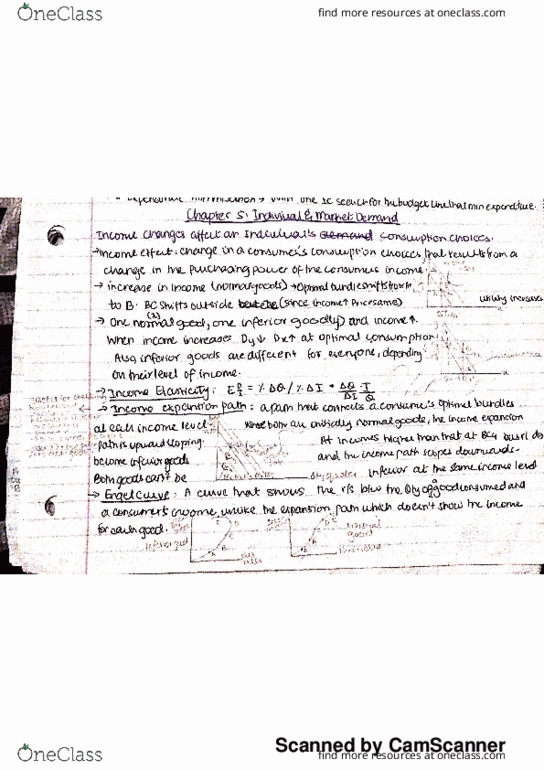 OneClass
find more resources at oneclass.com
with one IC search for the budget line that min expenditure.
Chapter 5: Individual & Market Demand
Income changes affect an Individual's demand consumption choices.
→Income effect: change in a consumer's consumption choices that results from a
change in the purchasing power of the consumers income.
→ increase in Income (normal goods) → Optimal bundle shifts from A
to B. BC shifts outside (since income↑ Prices same) utility increases
→ One normal good, one inferior good(y) and income↑.
When income increases Dy↓ Dx↑ at optimal consumption
Also inferior goods are different for everyone, depending
on their level of income.
→ Income Elasticity: = %ΔQ / %ΔI = ΔQ/ΔI I/Q
→ Income expansion path: a path that connects a consumer's optimal bundles
at each income level. When both are initially normal goods, the income expansion
Path is upward sloping. At incomes higher than that at BC4
become inferior goods and the income path slopes downwards.
Both goods can't be inferior at the same income level
→ Engel curve: A curve that shows the r/s b/w the Qty of a good consumed and
a consumer's income, unlike the expansion path which doesn't show the income
for each good. Inferior good normal good
Scanned by CamScanner
OneClass
find more resources at oneclass.com